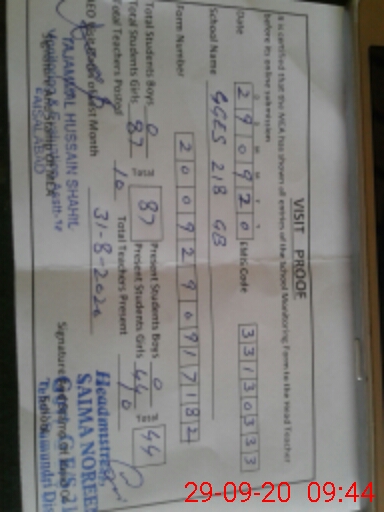 VISIT PROOF
It is certified that the MEA has shown all entries of the School Monitoring Form to the Head Teacher
before its online submission
Date 290920 EMIS Code 33130333
School Name GGES 218 GB
Form Number 2009290917182
Total Students Boys 0 Total 87 Present Students Boys 0 Total 44
Total Students Girls 87 Present Students Girls 44
Total Teachers Posted 10 Total Teachers Present 10
Last Month 31-8-2020
TAJAMMAL HUSSAIN SHAHID
FAISALABAD
Headmistress
SAIMA NOREEN
29-09-20 09:44